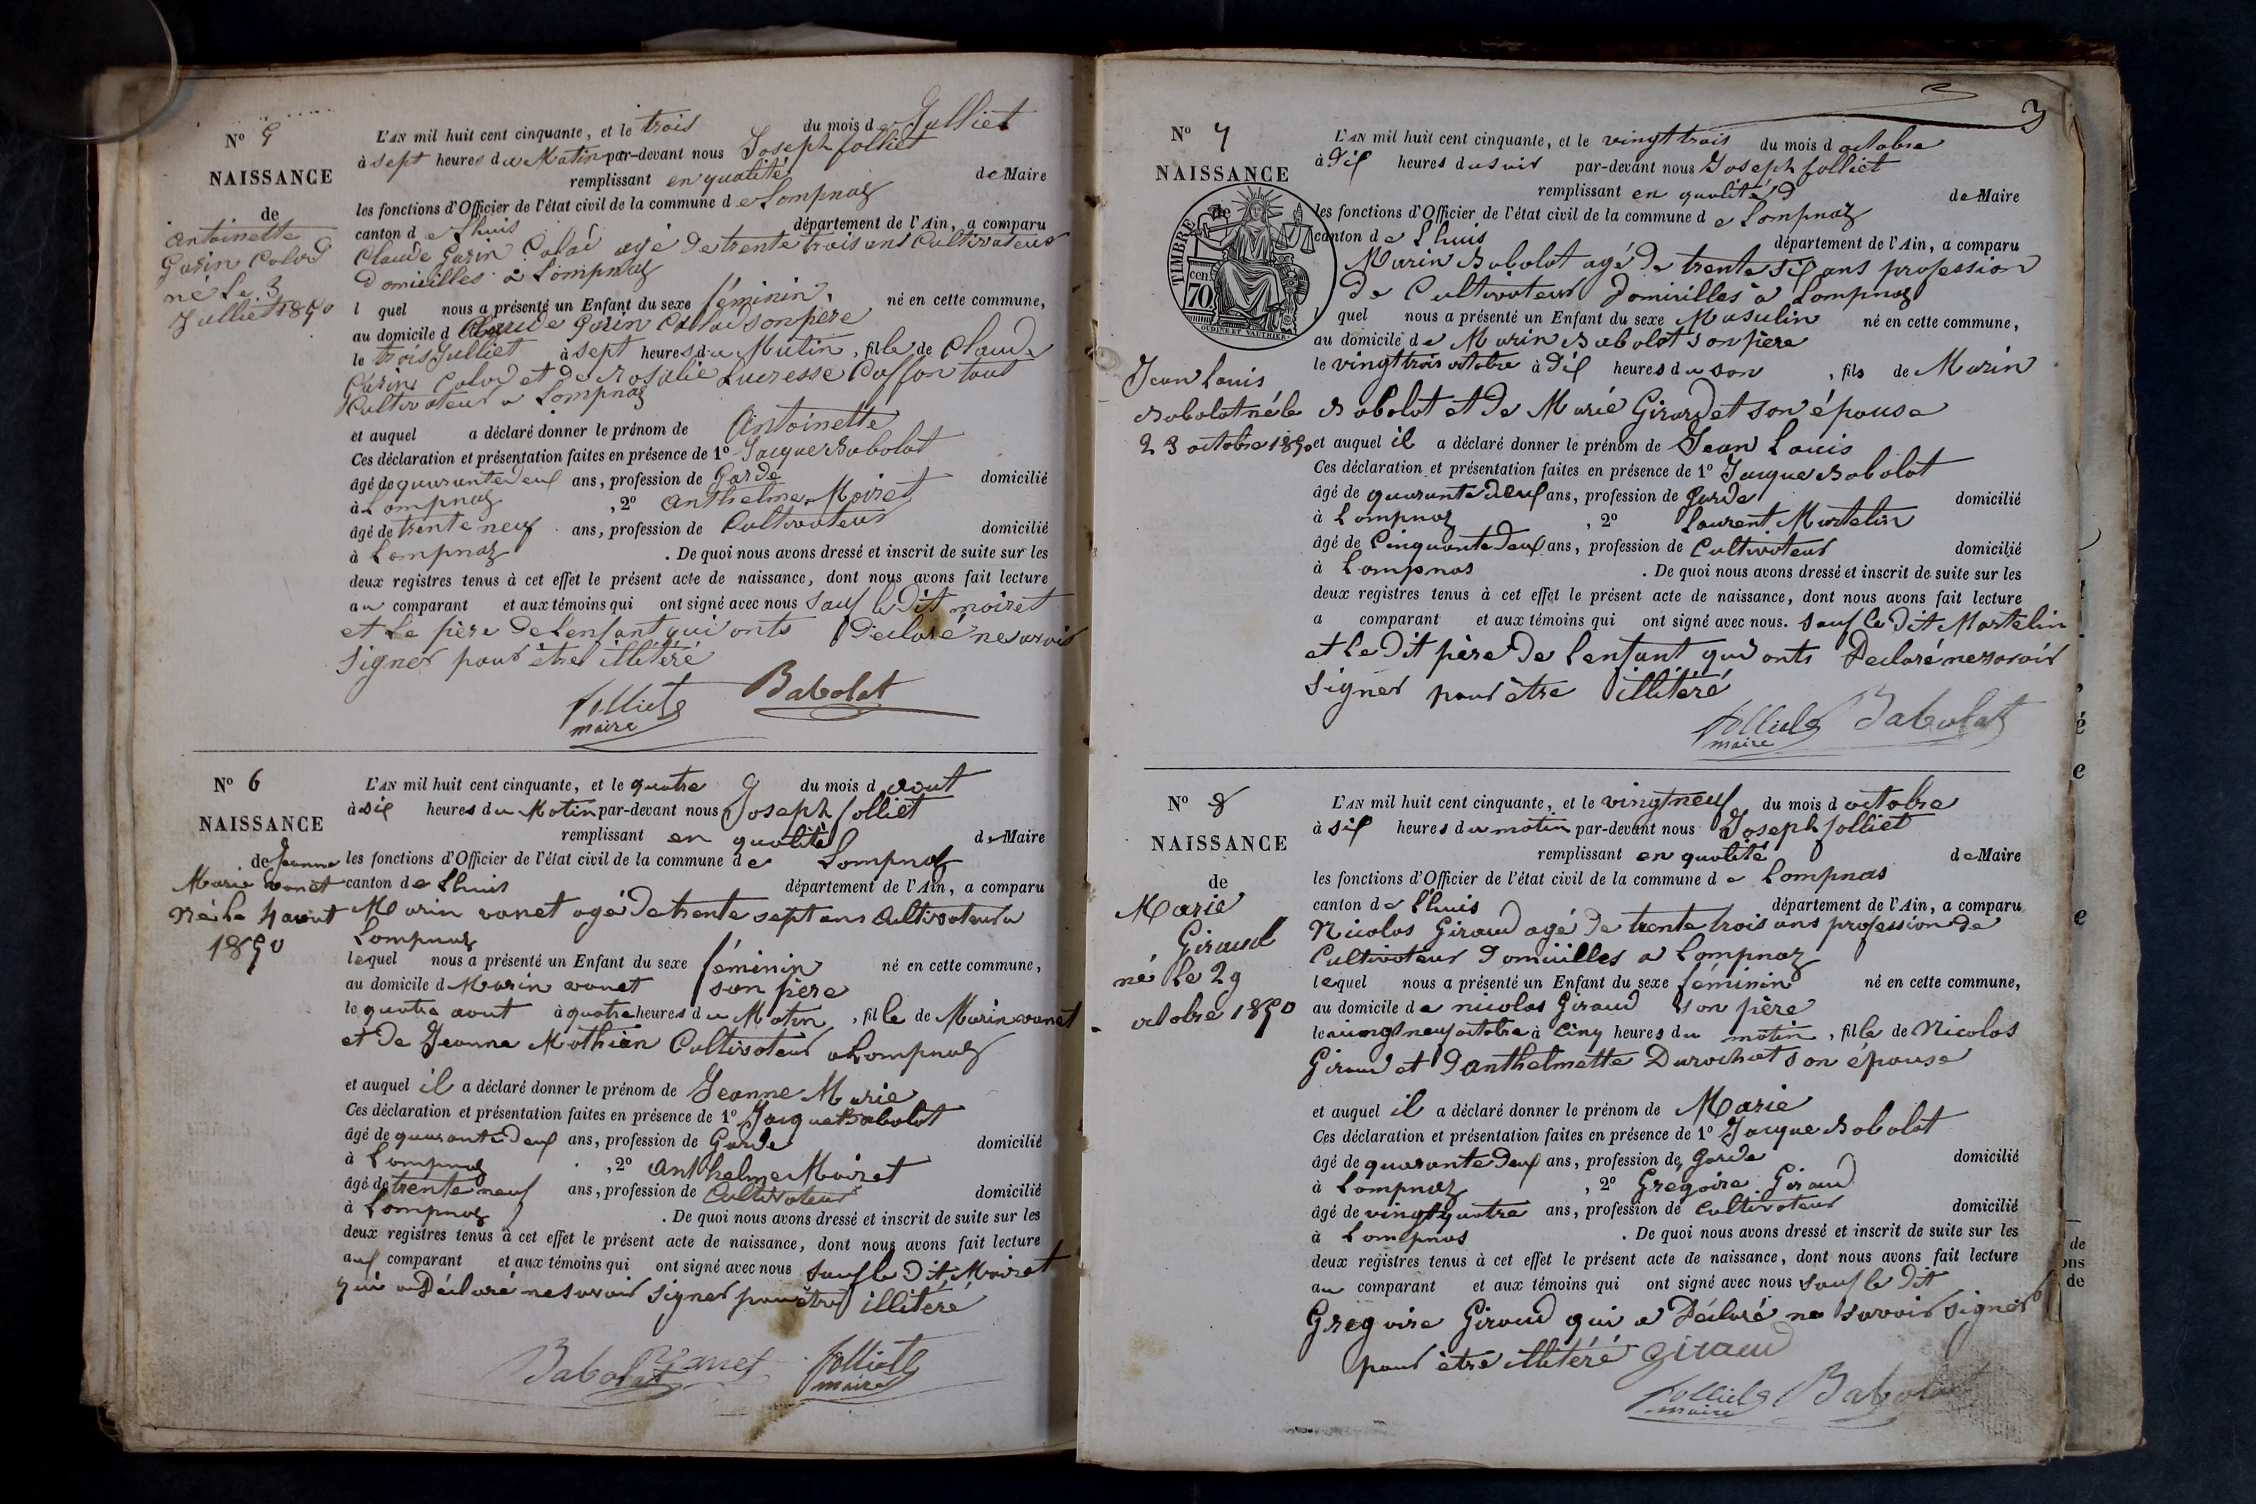 N° 5
NAISSANCE
de
Antoinette
Garin Calod
né le 3
Julliet 1850
L'AN mil huit cent cinquante, et le trois du mois de Julliet
à sept heures du Matin par-devant nous Joseph folliet
remplissant en qualité de Maire
les fonctions d'Officier de l'état civil de la commune de Lompnaz
canton de Lhuis département de l'Ain, a comparu
Claude Garin agé de trente trois ans Cultivateur
domicilles a Lompnaz
l quel nous a présenté un Enfant du sexe féminin, né en cette commune,
au domicile d Claude Garin son père
le trois Julliet à sept heures du Matin, fille de Claude
Garin Calod et de rosalie Lucresse tout
Cultivateur a Lompnaz
et auquel a déclaré donner le prénom de Antoinette
Ces déclaration et présentation faites en présence de 1° Jacque Babolat
âgé de quarante deux ans, profession de Garde domicilié
à Lompnaz , 2° Anthelme Moiret
âgé de trente neuf ans, profession de Cultivateur domicilié
à Lompnaz . De quoi nous avons dressé et inscrit de suite sur les
deux registres tenus à cet effet le présent acte de naissance, dont nous avons fait lecture
au comparant et aux témoins qui ont signé avec nous sauf le dit moiret
et le père de lenfant qui onts declaré ne savoir
signer pour être illitéré
folliet Babolat
maire
N° 6
NAISSANCE
de Jeanne
Marie vanet
né le 4 aout
1850
L'AN mil huit cent cinquante, et le quatre du mois d aout
à six heures du Matin par-devant nous Joseph folliet
remplissant en qualité de Maire
les fonctions d'Officier de l'état civil de la commune de Lompnaz
canton de Lhuis département de l'Ain, a comparu
Marin vanet agé de trente sept ans Cultivateur a
Lompnaz
lequel nous a présenté un Enfant du sexe féminin né en cette commune,
au domicile d Marin vanet son père
le quatre aout à quatre heures du Matin, fille de Marin vanet
et de Jeanne Mathieu Cultivateur a Lompnaz
et auquel il a déclaré donner le prénom de Jeanne Marie
Ces déclaration et présentation faites en présence de 1° Jacque Babolat
âgé de quarante deux ans, profession de Garde domicilié
à Lompnaz , 2° Anthelme Moiret
âgé de trente neuf ans, profession de Cultivateur domicilié
à Lompnaz . De quoi nous avons dressé et inscrit de suite sur les
deux registres tenus à cet effet le présent acte de naissance, dont nous avons fait lecture
aux comparant et aux témoins qui ont signé avec nous sauf le dit Moiret
qui a Déclaré ne savoir signer pour être illitéré
Babolat vanet folliet
maire
3
N° 7
NAISSANCE
de
TIMBRE
cen
70
Jean Louis
Babolat né le
23 octobre 1850
L'AN mil huit cent cinquante, et le vingt trois du mois d octobre
à dix heures du soir par-devant nous Joseph folliet
remplissant en qualité d de Maire
les fonctions d'Officier de l'état civil de la commune de Lompnaz
canton de Lhuis département de l'Ain, a comparu
Marin Babolat agé de trente six ans profession
de Cultivateur domicilles a Lompnaz
l quel nous a présenté un Enfant du sexe Masulin né en cette commune,
au domicile de Marin Babolat son père
le vingt trois octobre à dix heures du soir, fils de Marin
Babolat et de Marie Girardet son épouse
et auquel il a déclaré donner le prénom de Jean Louis
Ces déclaration et présentation faites en présence de 1° Jacque Babolat
âgé de quarante deux ans, profession de Garde domicilié
à Lompnaz , 2° Laurent Martelin
âgé de Cinquante deux ans, profession de Cultivateur domicilié
à Lompnas . De quoi nous avons dressé et inscrit de suite sur les
deux registres tenus à cet effet le présent acte de naissance, dont nous avons fait lecture
a comparant et aux témoins qui ont signé avec nous. sauf le dit Martelin
et le dit père de lenfant qui onts Declaré ne savoir
signer pour être illitéré
folliet Babolat
maire
N° 8
NAISSANCE
de
Marie
Giraud
né le 29
octobre 1850
L'AN mil huit cent cinquante, et le vingt neuf du mois d octobre
à six heures du matin par-devant nous Joseph folliet
remplissant en qualité de Maire
les fonctions d'Officier de l'état civil de la commune de Lompnas
canton de Lhuis département de l'Ain, a comparu
Nicolas Giraud agé de trente trois ans profession de
Cultivateur domicilles a Lompnaz
lequel nous a présenté un Enfant du sexe féminin né en cette commune,
au domicile de nicolas Giraud son père
le vingt neuf octobre à cinq heures du matin, fille de Nicolas
Giraud et d anthelmette Durochat son épouse
et auquel il a déclaré donner le prénom de Marie
Ces déclaration et présentation faites en présence de 1° Jacque Babolat
âgé de quarante deux ans, profession de Garde domicilié
à Lompnaz , 2° Gregoire Giraud
âgé de vingt quatre ans, profession de Cultivateur domicilié
à Lompnas . De quoi nous avons dressé et inscrit de suite sur les
deux registres tenus à cet effet le présent acte de naissance, dont nous avons fait lecture
au comparant et aux témoins qui ont signé avec nous sauf le dit
Gregoire Giraud qui a Déclaré ne savoir signer
pour être illitéré giraud
folliet Babolat
maire